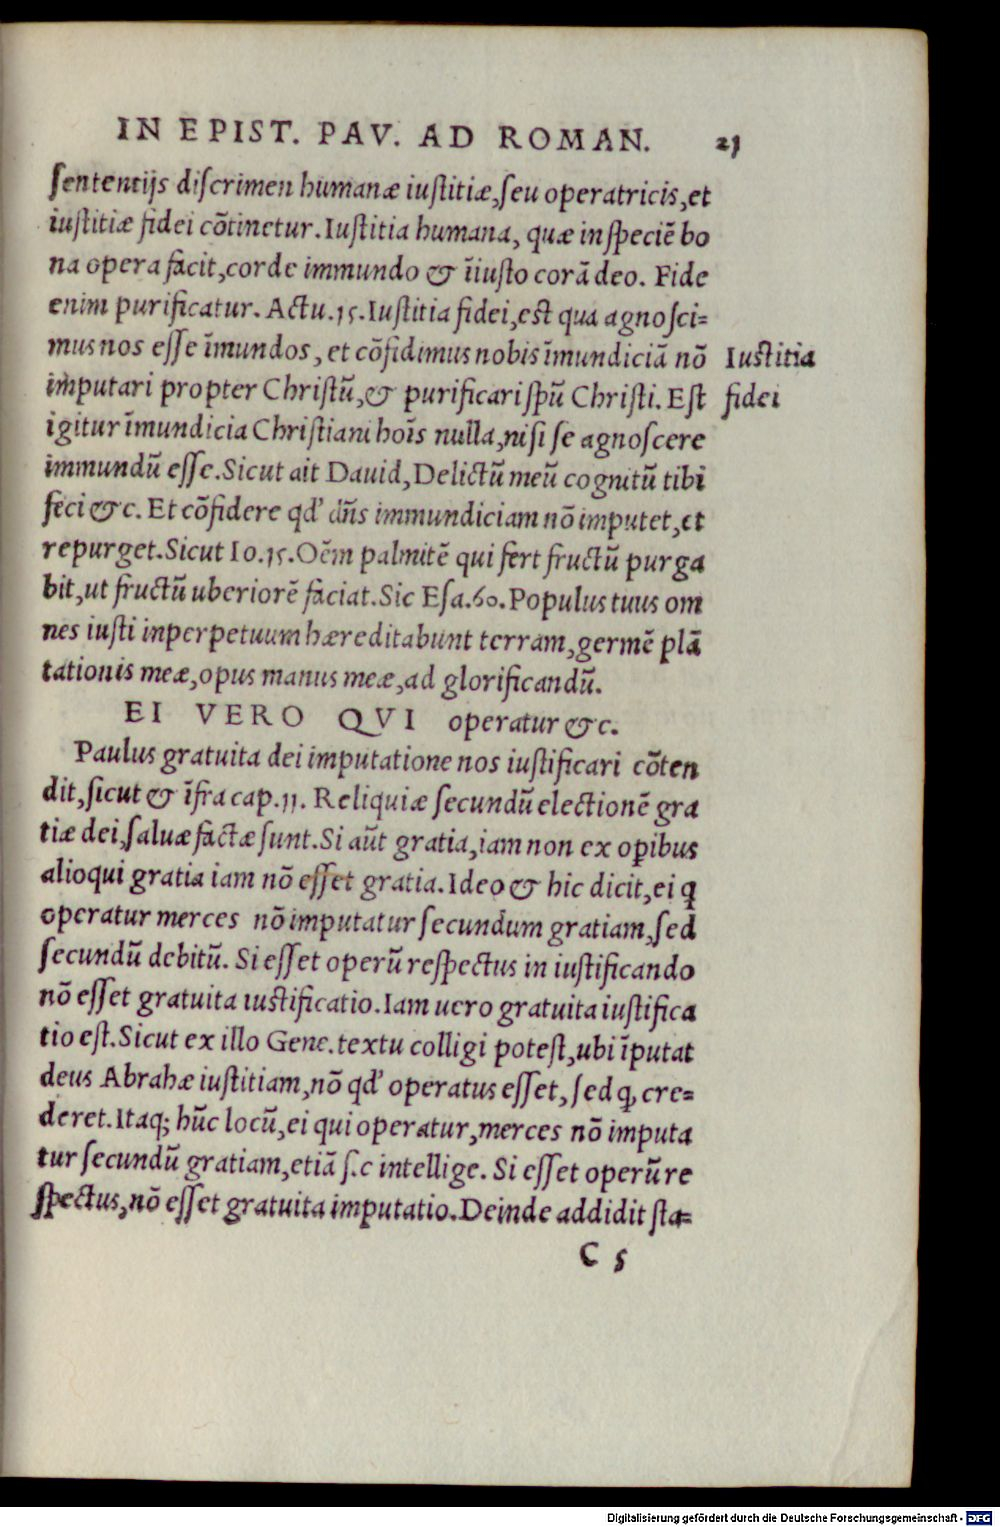 IN EPIST. PAV. AD ROMAN. 21
sententijs discrimen humanæ iustitiæ, seu operatricis, et
iustitiæ fidei cōtinetur. Iustitia humana, quæ in speciē bo
na opera facit, corde immundo & īiusto corā deo. Fide
enim purificatur. Actu. 15. Iustitia fidei, est qua agnosci=
mus nos esse īmundos, et cōfidimus nobis īmundiciā nō
Iustitia
imputari propter Christū, & purificari spū Christi. Est
fidei
igitur īmundicia Christiani hoīs nulla, nisi se agnoscere
immundū esse. Sicut ait Dauid, Delictū meū cognitū tibi
feci &c. Et cōfidere qđ dñs immundiciam nō imputet, et
repurget. Sicut Io. 15. Oēm palmitē qui fert fructū purga
bit, ut fructū uberiorē faciat. Sic Esa. 60. Populus tuus om
nes iusti inperpetuum hæreditabunt terram, germē plā
tationis meæ, opus manus meæ, ad glorificandū.
EI VERO QVI operatur &c.
Paulus gratuita dei imputatione nos iustificari cōten
dit, sicut & īfra cap. 11. Reliquiæ secundū electionē gra
tiæ dei, saluæ factæ sunt. Si aūt gratia, iam non ex oꝑibus
alioqui gratia iam nō esset gratia. Ideo & hic dicit, ei q
operatur merces nō imputatur secundum gratiam, sed
secundū debitū. Si esset operū respectus in iustificando
nō esset gratuita iustificatio. Iam uero gratuita iustifica
tio est. Sicut ex illo Gene. textu colligi potest, ubi īputat
deus Abrahæ iustitiam, nō qđ operatus esset, sed q, cre=
deret. Itaq; hūc locū, ei qui operatur, merces nō imputa
tur secundū gratiam, etiā s.c intellige. Si esset operū re
spectus, nō esset gratuita imputatio. Deinde addidit sta=
C 5
Digitalisierung gefördert durch die Deutsche Forschungsgemeinschaft - DFG